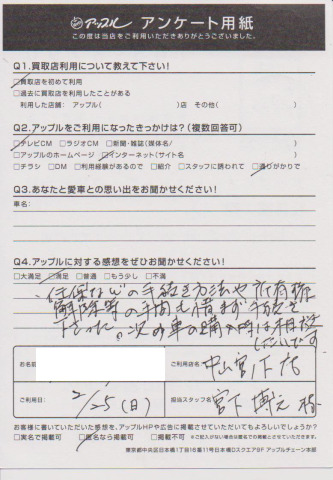 アップル アンケート用紙
この度は当店をご利用いただきありがとうございました。
Q1.買取店利用について教えて下さい!
□買取店を初めて利用
□過去に買取店を利用したことがある
利用した店舗: アップル( )店 その他( )
Q2.アップルをご利用になったきっかけは?(複数回答可)
□テレビCM □ラジオCM □新聞・雑誌(媒体名/ )
□アップルのホームページ □インターネット(サイト名 )
□チラシ □DM □利用経験があるので □紹介 □スタッフに誘われて □通りがかりで
Q3.あなたと愛車との思い出をお聞かせください!
車名:
Q4.アップルに対する感想をぜひお聞かせください!
□大満足 □満足 □普通 □もう少し □不満
の手続き方法や所有権
解除等の手間も惜まず
下さった。次の車の購入時は相談
したいです
お名前
ご利用店名 中山宮ノ下店
ご利用日 2/25(日)
担当スタッフ名 宮下博之様
お客様に書いていただいた感想を、アップルHPや広告に掲載させていただいてもよろしいでしょうか?
□実名で掲載可 □匿名なら掲載可 □掲載不可 ※ご記入がない場合は匿名での掲載とさせていただきます。
東京都中央区日本橋1丁目16番11号日本橋Dスクエア8F アップルチェーン本部